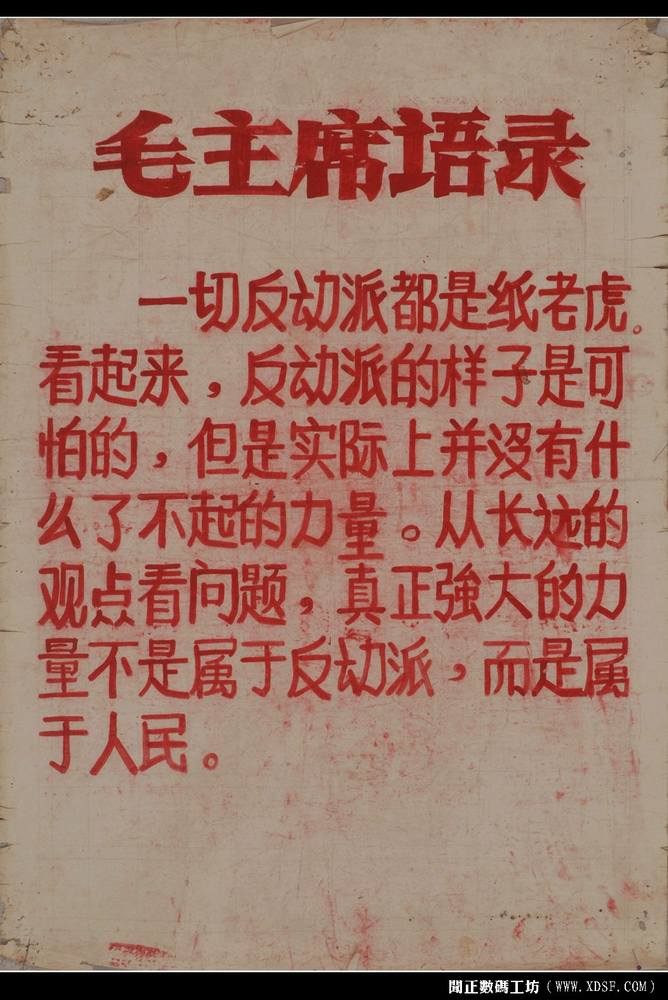 毛主席语录
一切反动派都是纸老虎。
看起来，反动派的样子是可
怕的，但是实际上并没有什
么了不起的力量。从长远的
观点看问题，真正強大的力
量不是属于反动派，而是属
于人民。
聞正數碼工坊（WWW.XDSF.COM）